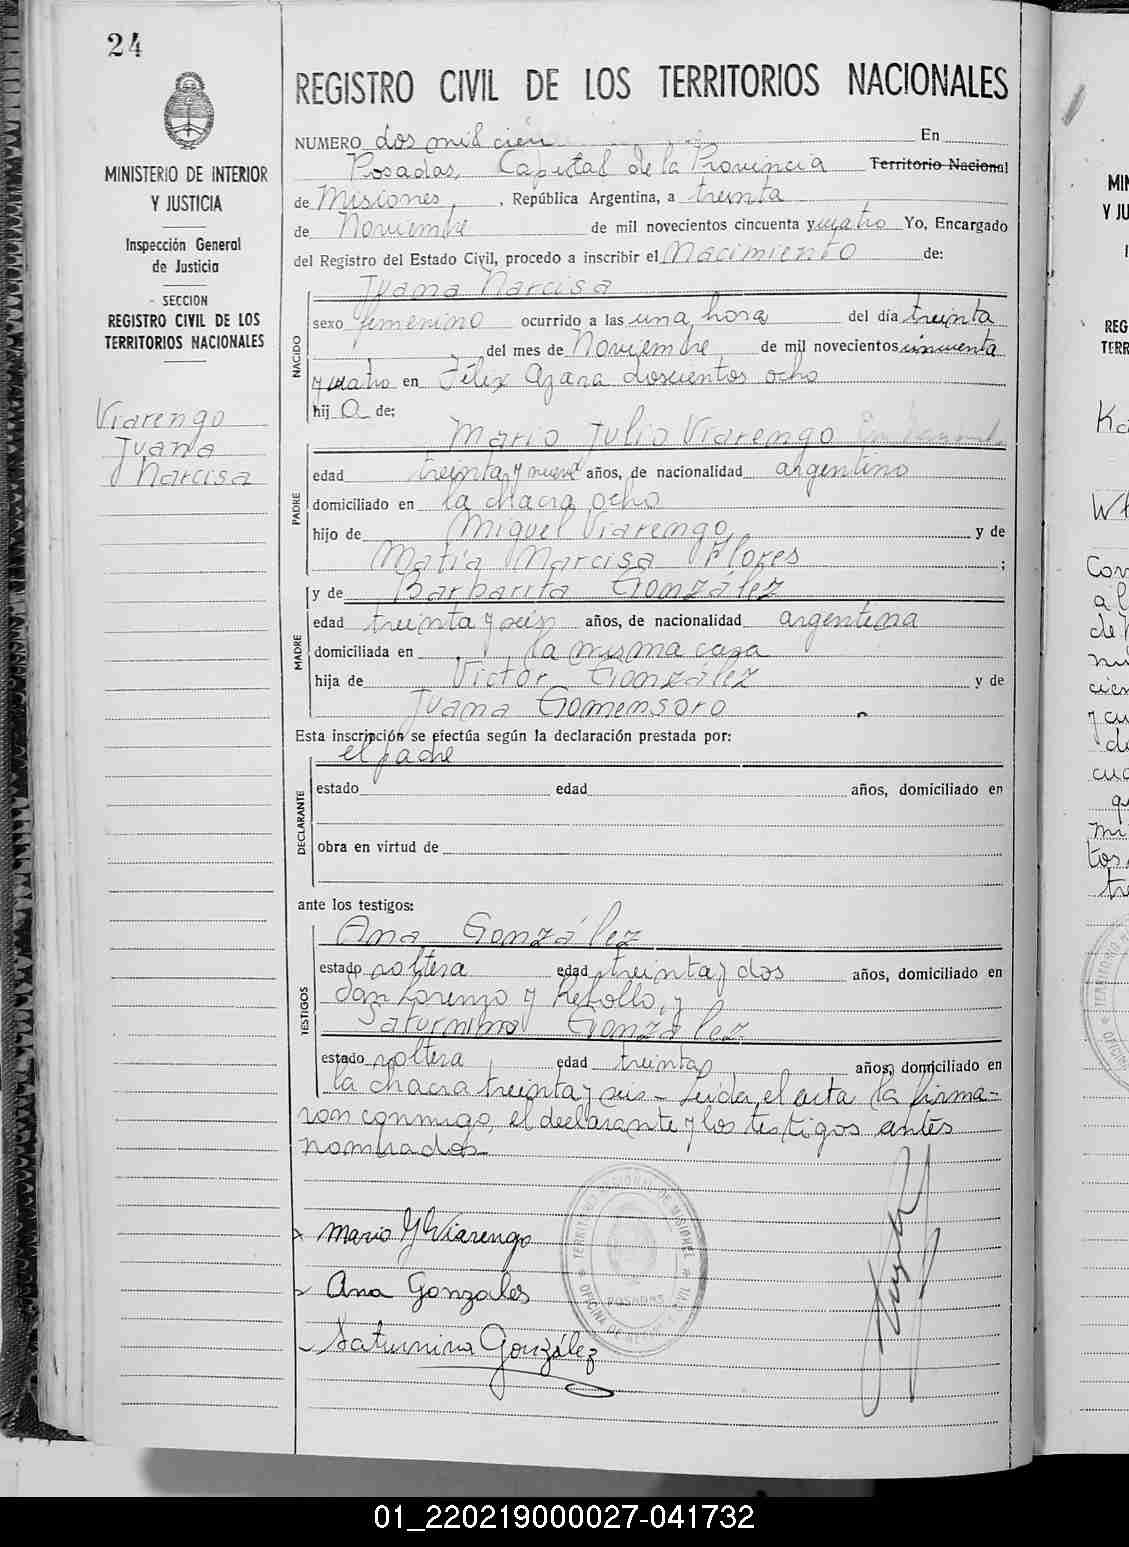 24
MINISTERIO DE INTERIOR
Y JUSTICIA
Inspección General
de Justicia
SECCION
REGISTRO CIVIL DE LOS
TERRITORIOS NACIONALES
Viarengo
Juana
Narcisa
REGISTRO CIVIL DE LOS TERRITORIOS NACIONALES
NUMERO dos mil cien En
Posadas, Capital de la Provincia Territorio Nacional
de Misiones, , República Argentina, a treinta
de Noviembre de mil novecientos cincuenta y cuatro Yo, Encargado
del Registro del Estado Civil, procedo a inscribir el Nacimiento de:
NACIDO
Juana Narcisa
sexo femenino ocurrido a las una hora del día treinta
del mes de Noviembre de mil novecientos cincuenta
y cuatro en Félix Azara doscientos ocho
hij a de:
PADRE
Mario Julio Viarengo
edad treinta y nueve años, de nacionalidad argentino
domiciliado en la chacra ocho
hijo de Miguel Viarengo y de
María Narcisa Flores ;
y de Barbarita González
MADRE
edad treinta y seis años, de nacionalidad argentina
domiciliada en la misma casa
hija de Victor González y de
Juana Gomensoro
Esta inscripción se efectúa según la declaración prestada por:
el padre
DECLARANTE
estado edad años, domiciliado en
obra en virtud de
ante los testigos:
TESTIGOS
Ana González
estado soltera edad treinta y dos años, domiciliado en
San Lorenzo y Rebollo, y
Saturnina González
estado soltera edad treinta años, domiciliado en
la chacra treinta y seis - Leída el acta la firma-
ron conmigo, el declarante y los testigos antes
nombrados
Mario J Viarengo
Ana Gonzales
Saturnina González
TERRITORIO NACIONAL DE MISIONES
POSADAS
01_220219000027-041732